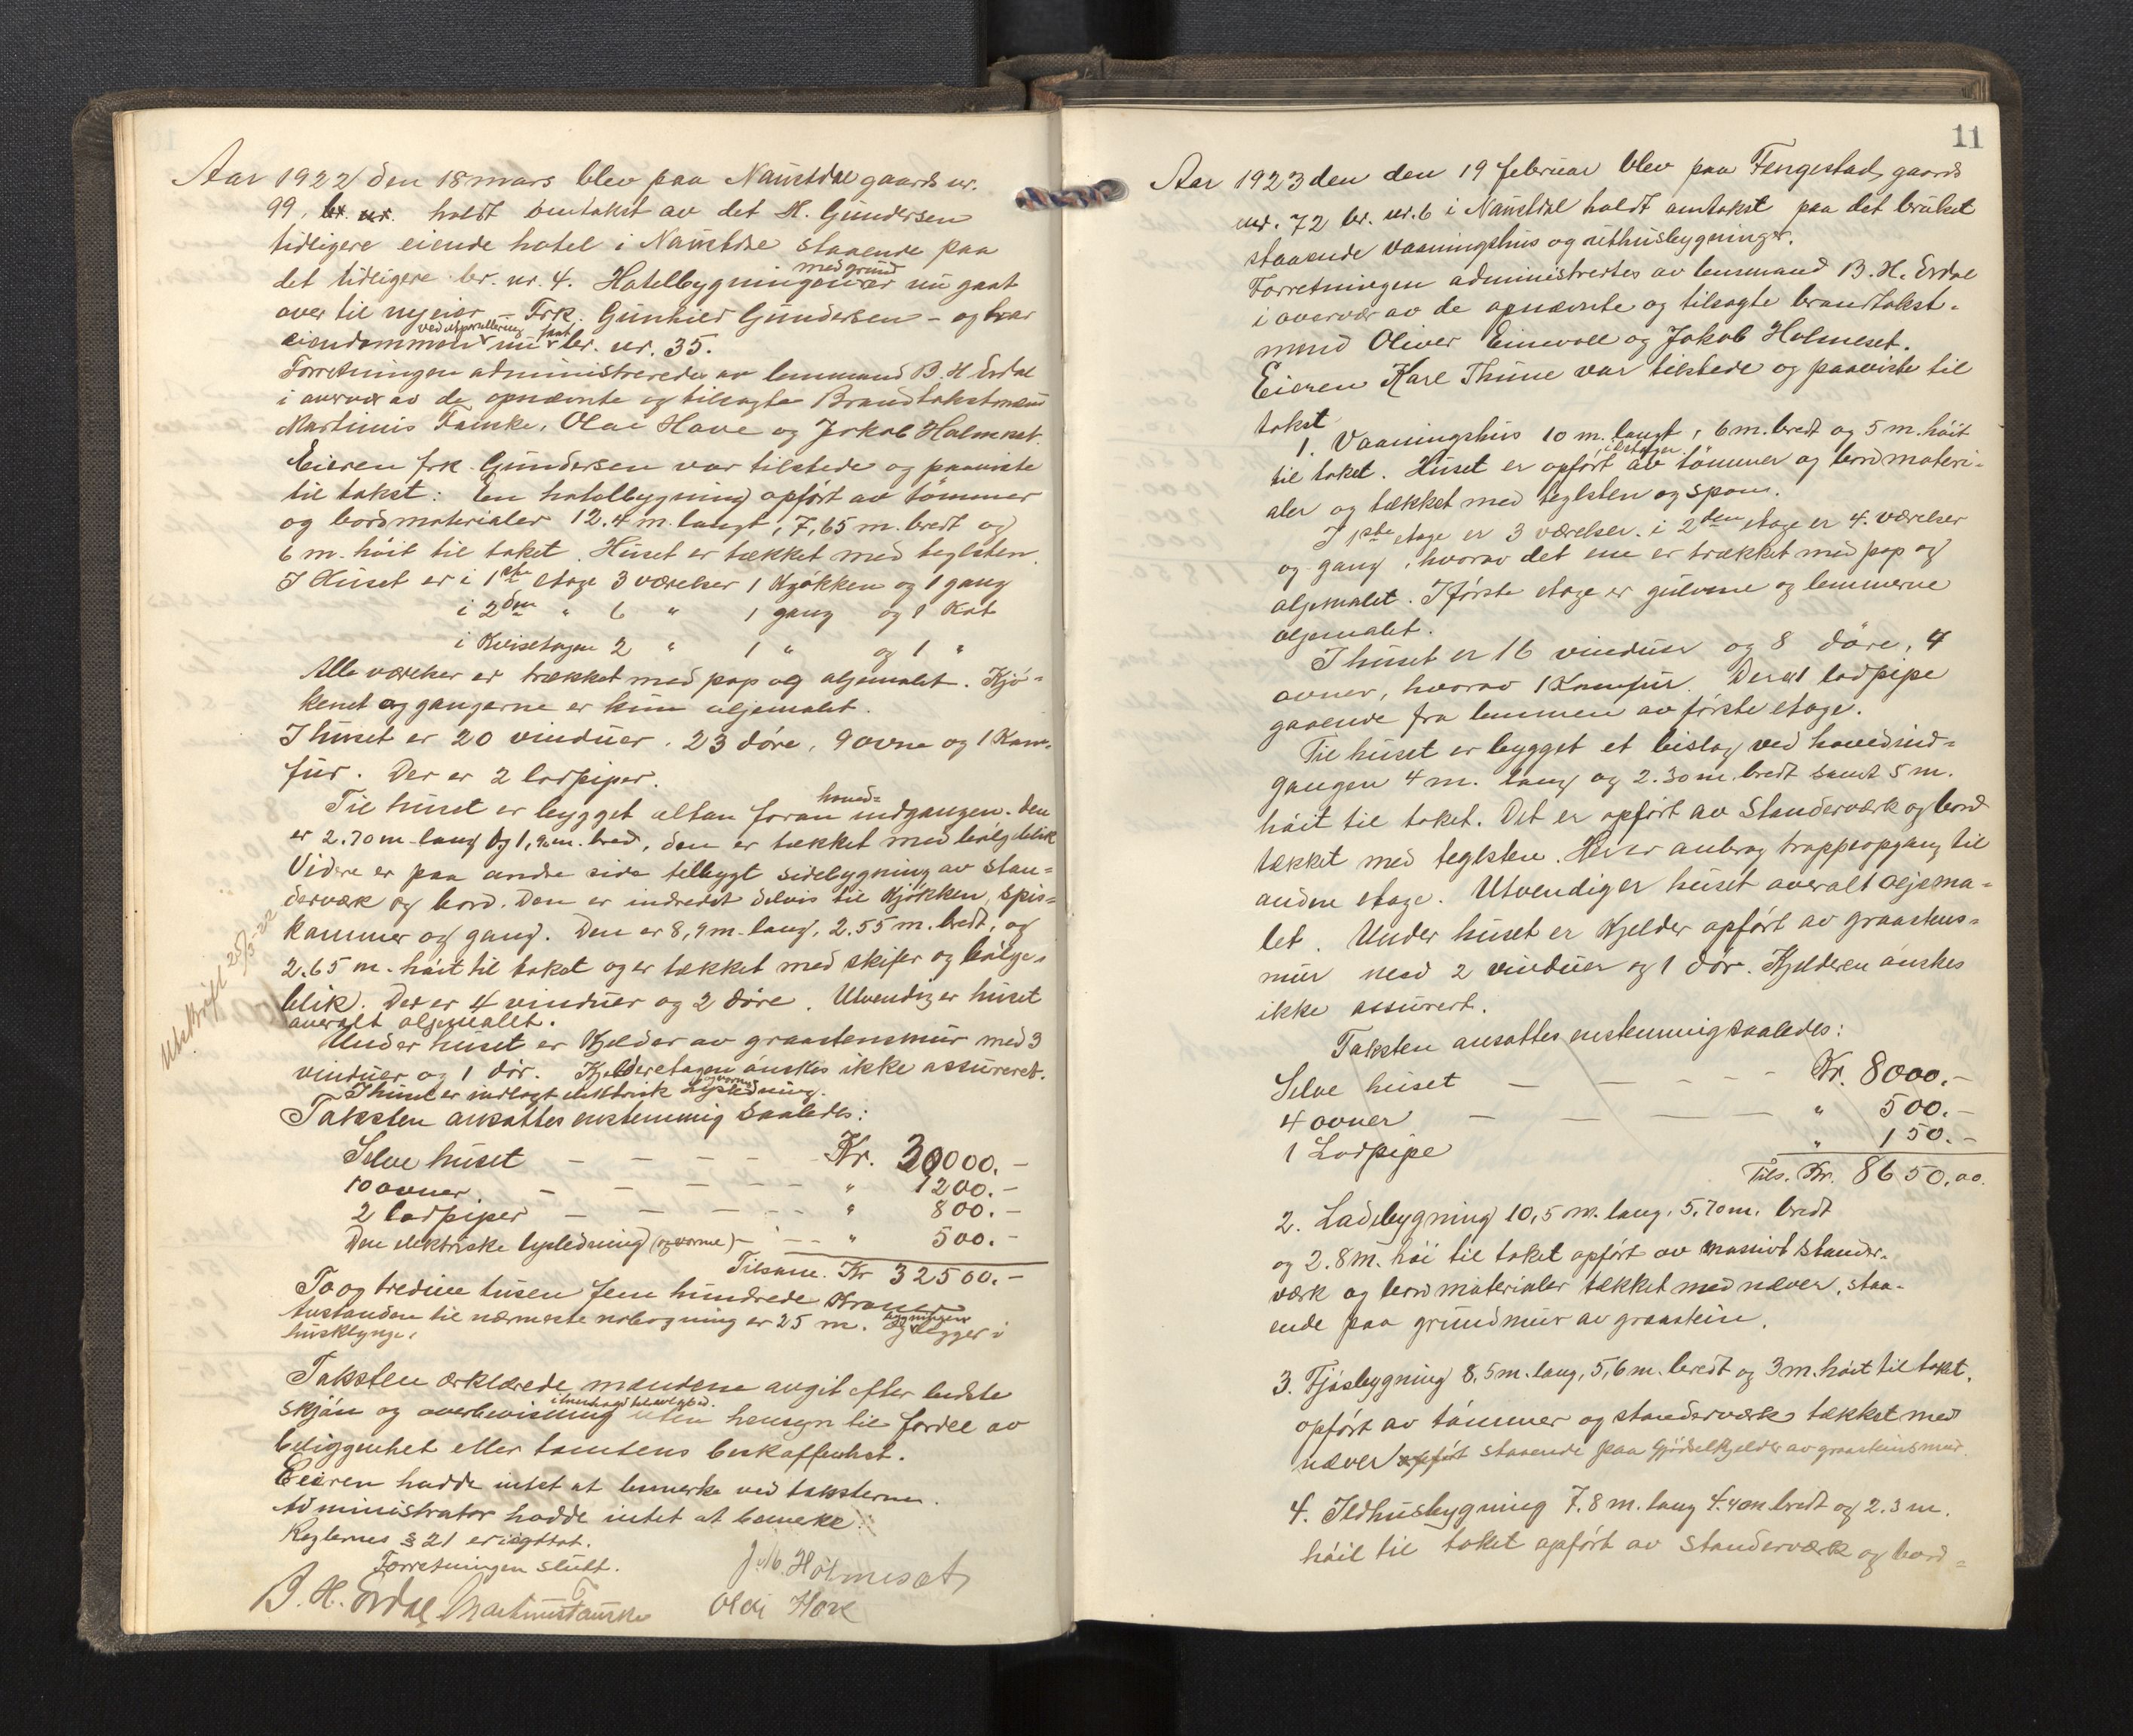 Aar 1922 den 18 mars blev paa Naustdal gaards nr.
99, br. nr. holdt omtakst av det H. Gundersen
tidligere eiende hotel i Naustdal staaende paa
det tidligere br. nr. 4. Hotelbygningen med grund er nu gaat
over til ny eier – Frk. Gunhild Gundersen – og har
eiendommen ved utparsellering nu faat br. nr. 35.
Forretningen administreredes av lensmand B. H. Erdal
i overvær av de opnævnte og tilsagte Brandtakstmænd
Martinus Taûske, Olai Have og Jakob Holmeset.
Eieren frk. Gundersen var tilstede og paaviste
til takst: En hotelbygning opført av tømmer
og bordmaterialer 12.4 m. langt, 7,65 m. bredt og
6 m. høit til taket. Huset er tækket med teglsten.
I Huset er i 1ste etage 3 værelser 1 Kjøkken og 1 gang
i 2den " 6 " 1 gang og 1 Kot
i Kvistetagen 2 " 1 " og 1 "
Alle værelser er trækket med pap og oljemalet. Kjø-
kenet og gangerne er kun oljemalet.
I huset er 20 vinduer, 23 døre, 9 ovne og 1 Kom-
fur. Der er 2 lodpiper.
Til huset er bygget altan foran hoved= indgangen. Den
er 2.70 m. lang og 1,90 m. bred, den er tækket med bølgeblik
Videre er paa andre side tilbygt sidebygning av stan=
derværk og bord. Den er indredet delvis til Kjøkken, spis=
kammer og gang. Den er 8,9 m. lang, 2.55 m. bredt, og
2.65 m. høit til taket og er tækket med skifer og bølge-
blik. Der er 4 vinduer og 2 døre. Utvendig er huset
overalt oljemalet.
Utskrift 25/3-22
Under huset er Kjelder av graastensmur med 3
vinduer og 1 dør. Kjelderetagen ønskes ikke assureret.
I huset er indlagt elektrisk lysledning og varme.
Taksten ansattes enstemmig saaledes:
Selve huset – – – – – Kr. 30000.–
10 ovner. – – – – – " 1200.–
2 lodpiper – – – – – " 800.–
Den elektriske lysledning (og varme) – – – " 500.–
Tilsam. Kr 32500.–
To og tredive tusen fem hundrede Kroner
Avstanden til nærmeste nabobygning er 25 m. og bygningen ligger i
husklynge.
Taksten erklærede mændene avgit efter bedste
skjøn og overbevisning i henhold til uten hensyn til fordel av
beliggenhet eller tomtens beskaffenhet.
Eieren hadde intet at bemerke ved taksterne.
Administrator hadde intet at bemerke.
Reglernes § 21 er iagttat.
Forretningen slutt.
B. H. Erdal Martinus Tauske
Jak. Holmeset
Olai Hove
11
Aar 1923 den den 19 februar blev paa Fengestad, gaards
nr. 72 br. nr. 6 i Naustdal holdt omtakst paa det bruket
staaende vaaningshus og uthusbygninger.
Forretningen administrertes av lensmand B. H. Erdal
i overvær av de opnævnte og tilsagte brandtakst-
mænd Oliver Einevoll og Jakob Holmeset.
Eieren Karl Thune var tilstede og paaviste til
takst
1. Vaaningshus 10 m. langt, 6 m. bredt og 5 m. høit
til taket. Huset er opført i 2 etager av tømmer og bordmateri-
aler og tækket med teglsten og spon.
I 1ste etage er 3 værelser. i 2den etage er 4. værelser
og gang, hvorav det ene er trækket med pap og
oljemalet. I første etage er gulvene og lemmerne
oljemalet.
I huset er 16 vinduer og 8 døre, 4
ovner, hvorav 1 Komfur. Der er 1 lodpipe
gaaende fra lemmen av første etage.
Til huset er bygget et bislag ved hovedind=
gangen 4 m. lang og 2.30 m. bredt samt 5 m.
høit til taket. Det er opført av Standerværk og bord
tækket med teglsten. Her er anbrag trappeopgang til
anden etage. Utvendig er huset overalt oljema-
let. Under huset er Kjelder opført av graastens=
mur med 2 vinduer og 1 dør. Kjelderen ønskes
ikke assurert.
Taksten ansattes enstemmig saaledes:
Selve huset – – – – – Kr. 8000.–
4 ovner – – – – " 500.–
1 Lodpipe " 150.–
Tils. Kr. 8650,00.
2. Ladebygning 10,5 m. lang, 5.70 m. bredt
og 2.8 m. høi til taket opført av massivt stander-
værk og bordmaterialer tækket med næver, staa-
ende paa grundmur av graastein.
3. Fjøsbygning 8.5 m. lang, 5,6 m. bredt og 3 m. høit til taket,
opført av tømmer og standerværk tækket med
næver opført staaende paa Gjødselkjelder av graasteinsmur.
4. Ildhusbygning 7.8 m. lang 4.40 m bredt og 2.3 m.
høit til taket opført av Standerværk og bord=